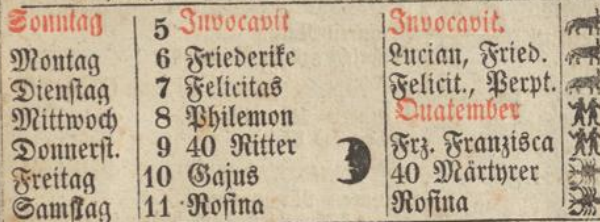 Sonntag 5 Invocavit Invocavit.
Montag 6 Friederike Lucian, Fried.
Dienstag 7 Felicitas Felicit., Perpt.
Mittwoch 8 Philemon Quatember
Donnerst. 9 40 Ritter Frz. Franzisca
Freitag 10 Gajus 40 Märtyrer
Samstag 11 Rosina Rosina